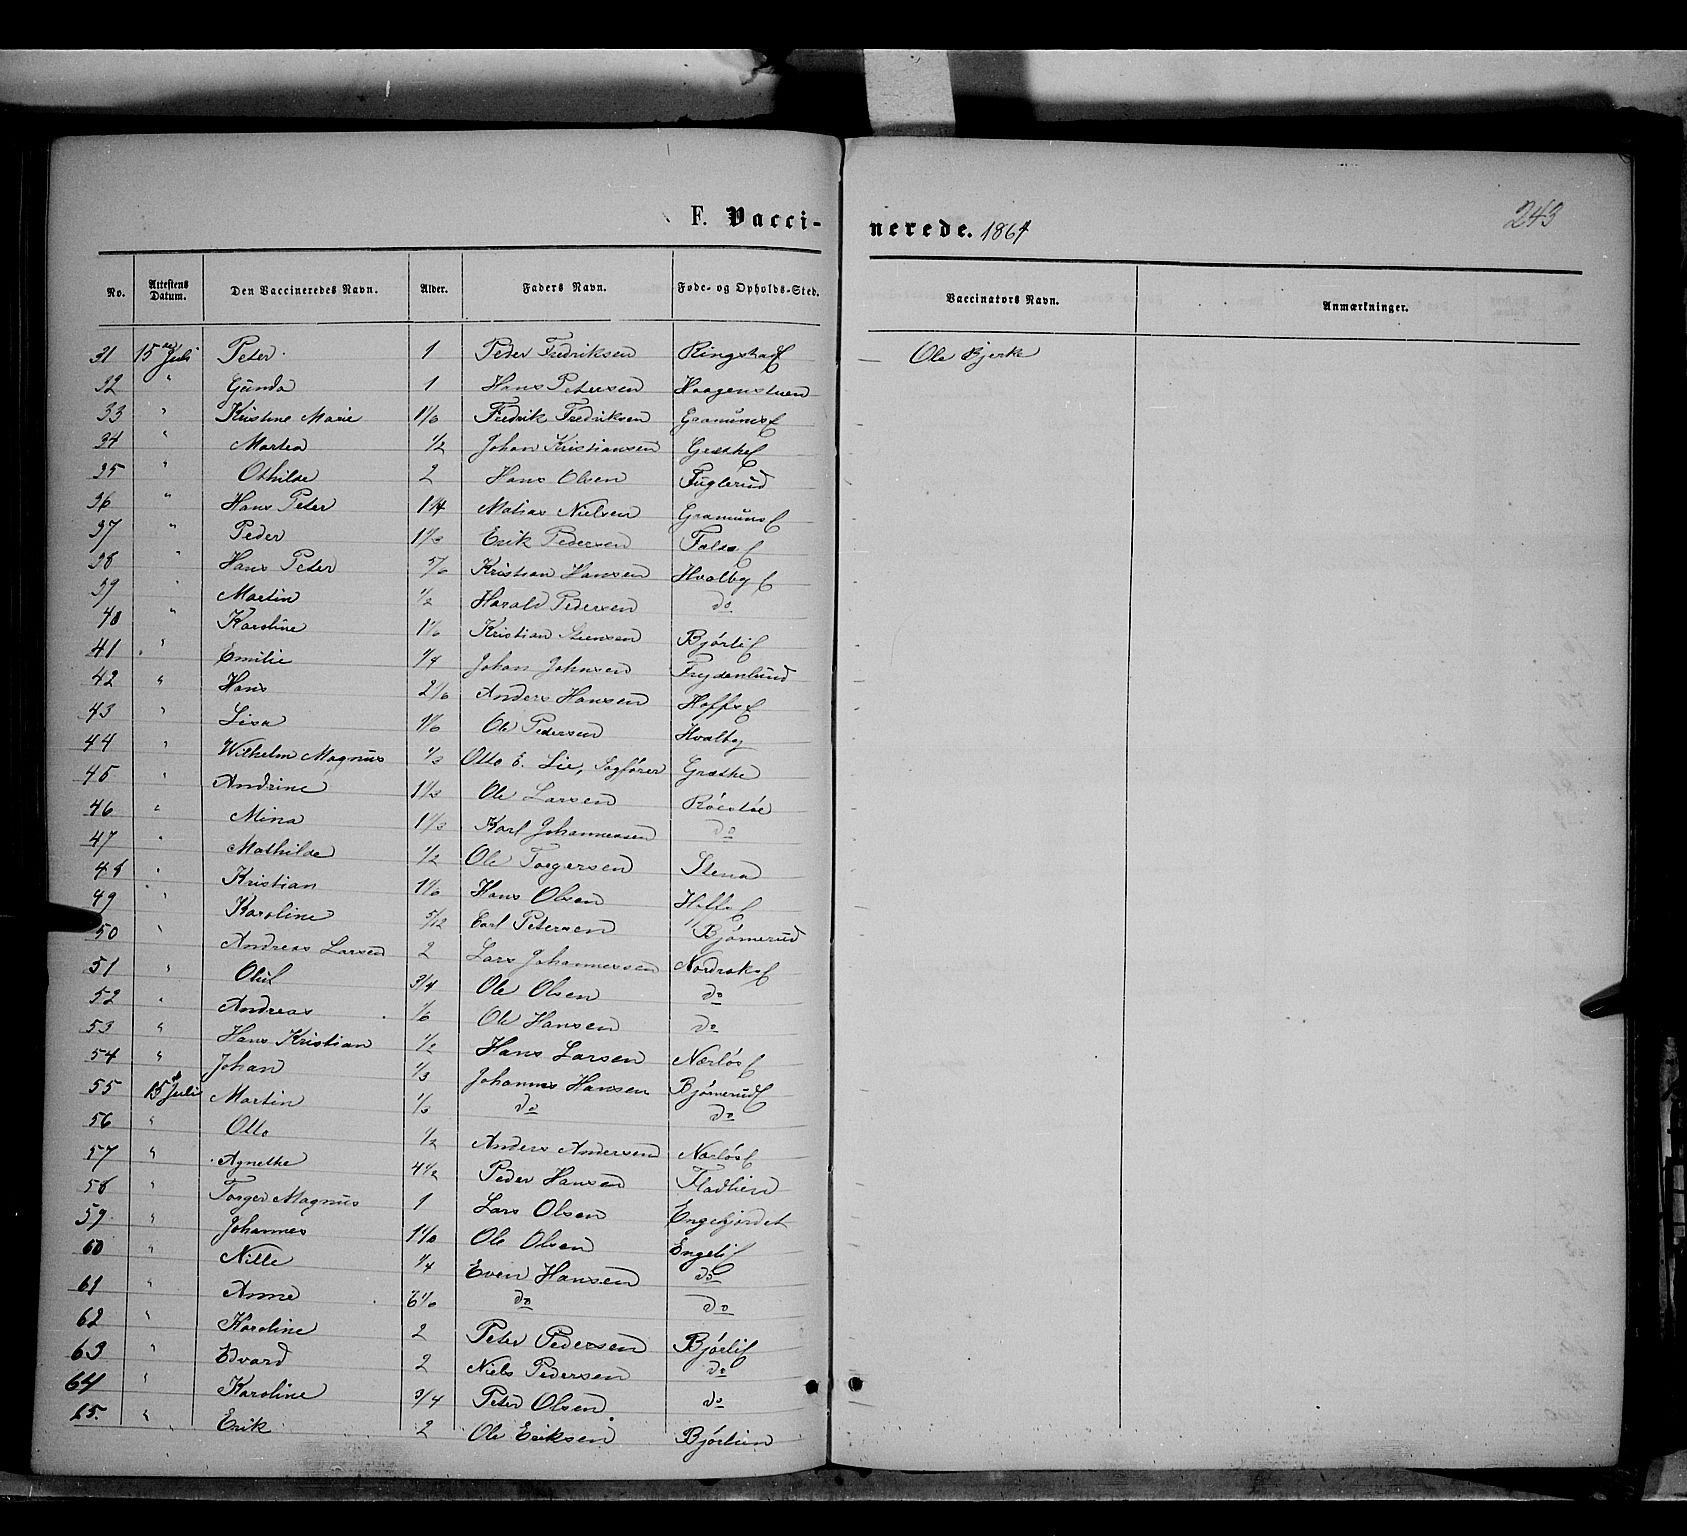 F. Vacci-
nerede. 1864
243
No. Attestens Datum. Den Vaccineredes Navn. Alder. Faders Navn. Føde- og Opholds-Sted. Vaccinators Navn. Anmærkninger.
31 15 Juli Peter 1 Peder Fredriksen Ole Bjerke
32 " Gunda 1 Hans Petersen Haagenstuen
33 " Kristine Marie 1 1/6 Fredrik Fredriksen
34 " Martea 1/2 Johan Kristiansen
35 " Othilde 2 Hans Olsen Fuglerud
36 " Hans Peter 1 1/4 Matias Nielsen
37 " Peder 1 1/3 Erik Pedersen
38 " Hans Peter 5/6 Kristian Hansen Hvalby
39 " Martin 1/2 Harald Pedersen do
40 " Karoline 1 1/6 Kristian Steensen
41 " Emilie 1/4 Johan Johnsen Frydenlund
42 " Hans 2 1/6 Anders Hansen
43 " Lisa 1 1/6 Ole Pedersen Hvalby
44 " Wilhelm Magnus 1/3 Otto E. Lie, Sagfører Græthe
45 " Andrine 1 1/3 Ole Larsen
46 " Mina 1 1/3 Karl Johannessen do
47 " Mathilde 1/2 Ole Torgersen Stena
48 " Kristian 1 1/6 Hans Olsen
49 " Karoline 5/12 Carl Petersen Bjørnerud
50 " Andreas Larsen 2 Lars Johannessen
51 " Oluf 3/4 Ole Olsen do
52 " Andreas 1/6 Ole Hansen do
53 " Hans Kristian 1/2 Hans Larsen
54 " Johan 1/3 Johannes Hansen
55 15 Juli Martin 1/3 do do
56 " Otto 1/2 Anders Andersen
57 " Agnethe 4 1/2 Peder Hansen Fladlien
58 " Torger Magnus 1 Lars Olsen
59 " Johannes Ole Olsen
60 " Nille 1/4 Even Hansen do
61 " Anne do do
62 " Karoline 2 Peter Pedersen
63 " Edvard 2 Niels Pedersen do
64 " Karoline 3/4 Peter Olsen do
65. " Erik 2 Ole Eriksen Bjørlien